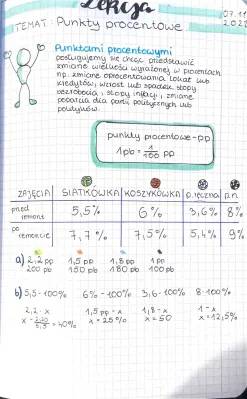 Lekcja
TEMAT: Punkty procentowe
07.11
2022
Punktami procentowymi
posługujemy się chcąc przedstawić
zmianę wielkości wyrażonej w procentach
np. zmianę oprocentowania lokat lub
kredytów, wzrost lub spadek stopy
bezrobocia, stopy inflacji, zmianę
poparcia dla partii politycznych lub
polityków.
punkty procentowe - pp
1pb = 1/100 pp
ZAJĘCIA SIATKÓWKA KOSZYKÓWKA p.ręczna p.n.
przed remont 5,5% 6% 3,6% 8%
po remoncie 7,7% 7,5% 5,4% 9%
a) 2,2 pp 1,5 pp 1,8 pp 1 pp
200 pb 150 pb 180 pb 100 pb
b) 5,5 - 100% 6% - 100% 3,6 - 100% 8 - 100%
2,2 - x 1,5 pp - x 1,8 - x 1 - x
x = 220/5,5 = 40% x = 25% x = 50 x = 12,5%